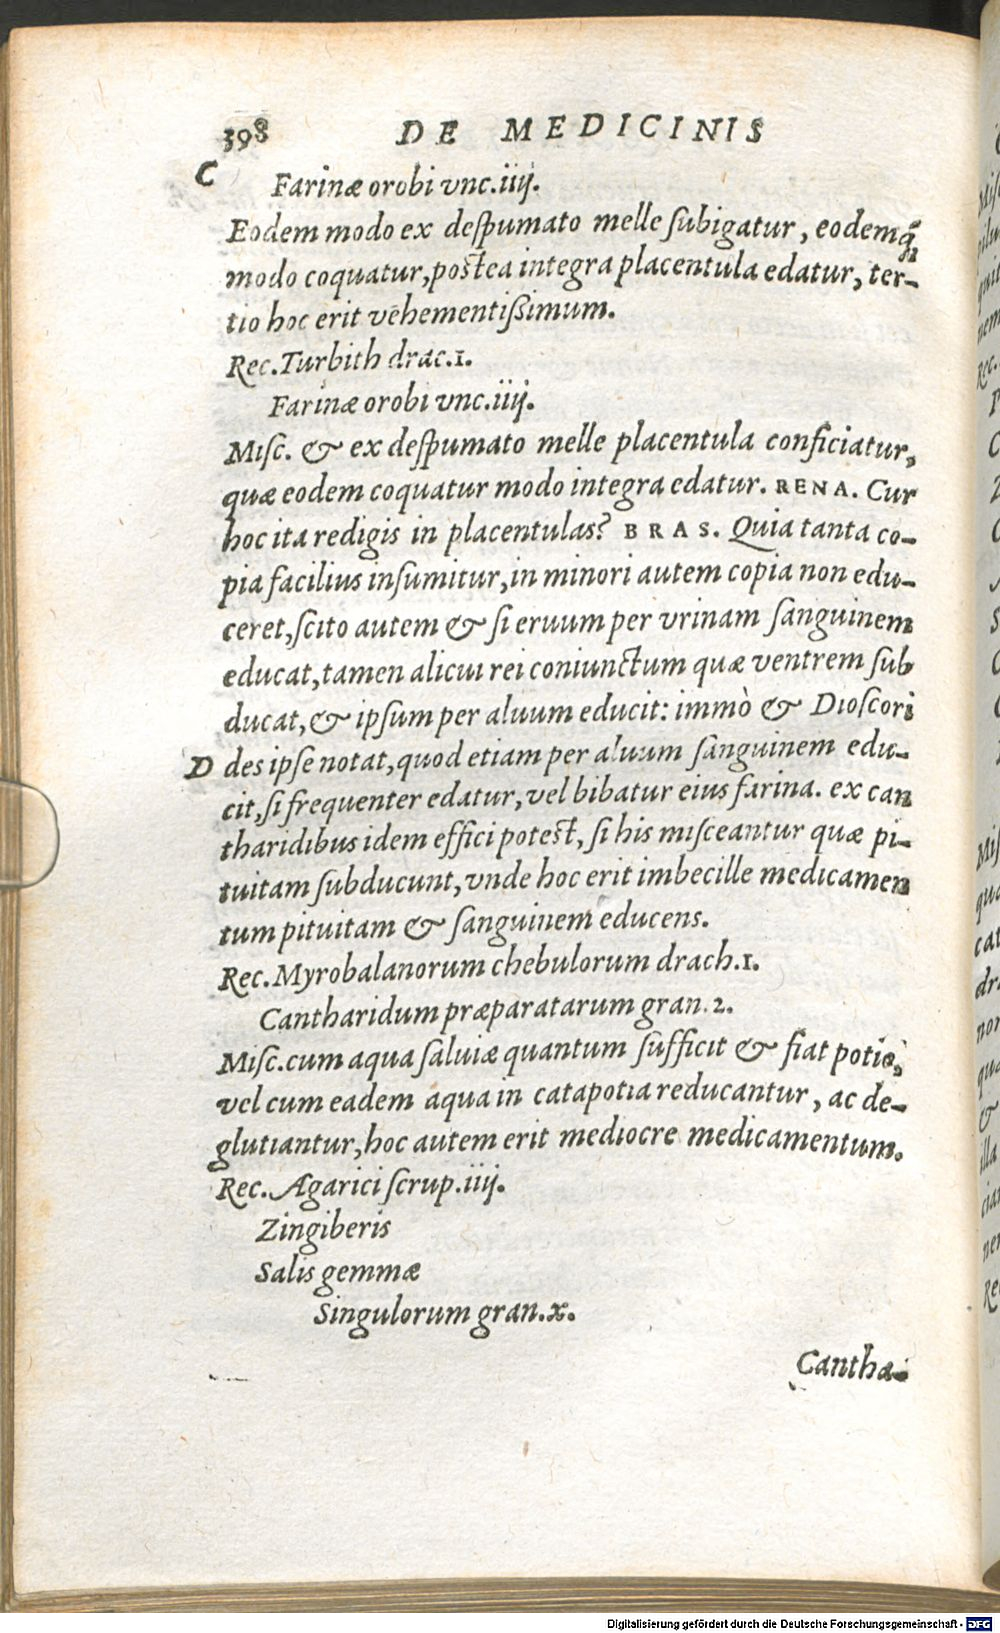 398 DE MEDICINIS
C Farinæ orobi vnc.iiij.
Eodem modo ex deſpumato melle ſubigatur, eodemq́;
modo coquatur, postea integra placentula edatur, ter-
tio hoc erit vehementiſsimum.
Rec. Turbith drac.1.
Farinæ orobi vnc.iiij.
Miſc. & ex deſpumato melle placentula conficiatur,
quæ eodem coquatur modo integra edatur. RENA. Cur
hoc ita redigis in placentulas? BRAS. Quia tanta co-
pia facilius inſumitur, in minori autem copia non edu-
ceret, ſcito autem & ſi eruum per vrinam ſanguinem
educat, tamen alicui rei coniunctum quæ ventrem ſub
ducat, & ipſum per aluum educit: immò & Dioſcori
D des ipſe notat, quod etiam per aluum ſanguinem edu-
cit, ſi frequenter edatur, vel bibatur eius farina. ex can
tharidibus idem effici potest, ſi his miſceantur quæ pi-
tuitam ſubducunt, vnde hoc erit imbecille medicamen
tum pituitam & ſanguinem educens.
Rec. Myrobalanorum chebulorum drach.1.
Cantharidum præparatarum gran.2.
Miſc. cum aqua ſaluiæ quantum ſufficit & fiat potio,
vel cum eadem aqua in catapotia reducantur, ac de-
glutiantur, hoc autem erit mediocre medicamentum.
Rec. Agarici ſcrup.iiij.
Zingiberis
Salis gemmæ
Singulorum gran.x.
Cantha-
Digitalisierung gefördert durch die Deutsche Forschungsgemeinschaft - DFG